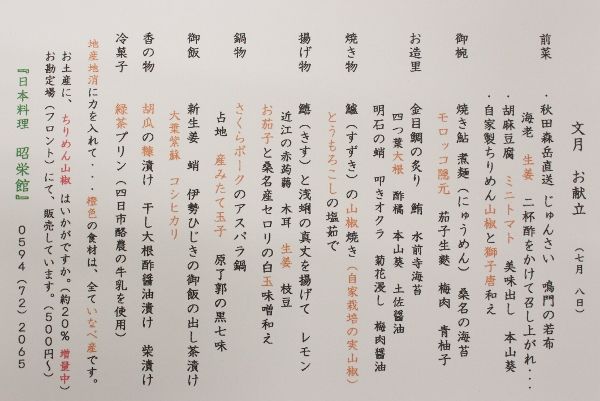 文月 お献立 (七月 八日)
前菜 ・秋田森岳直送 じゅんさい 鳴門の若布
海老 生姜 二杯酢をかけて召し上がれ・・・
・胡麻豆腐 ミニトマト 美味出し 本山葵
・自家製ちりめん山椒と獅子唐和え
御椀 焼き鮎 煮麺(にゅうめん) 桑名の海苔
モロッコ隠元 茄子生麩 梅肉 青柚子
お造里 金目鯛の炙り 鮪 水前寺海苔
四つ葉大根 酢橘 本山葵 土佐醤油
明石の蛸 叩きオクラ 菊花浸し 梅肉醤油
焼き物 鱸(すずき)の山椒焼き(自家栽培の実山椒)
とうもろこしの塩茹で
揚げ物 鱚(きす)と浅蜊の真丈を揚げて レモン
近江の赤蒟蒻 木耳 生姜 枝豆
お茄子と桑名産セロリの白玉味噌和え
鍋物 さくらポークのアスパラ鍋
占地 産みたて玉子 原了郭の黒七味
御飯 新生姜 蛸 伊勢ひじきの御飯の出し茶漬け
大葉紫蘇 コシヒカリ
香の物 胡瓜の糠漬け 干し大根酢醤油漬け 柴漬け
冷菓子 緑茶プリン(四日市酪農の牛乳を使用)
地産地消に力を入れて・・・橙色の食材は、全ていなべ産です。
お土産に、ちりめん山椒 はいかがですか。(約20% 増量中)
お勘定場(フロント)にて、販売しています。(500円〜)
『日本料理 昭栄館』 0594(72)2065